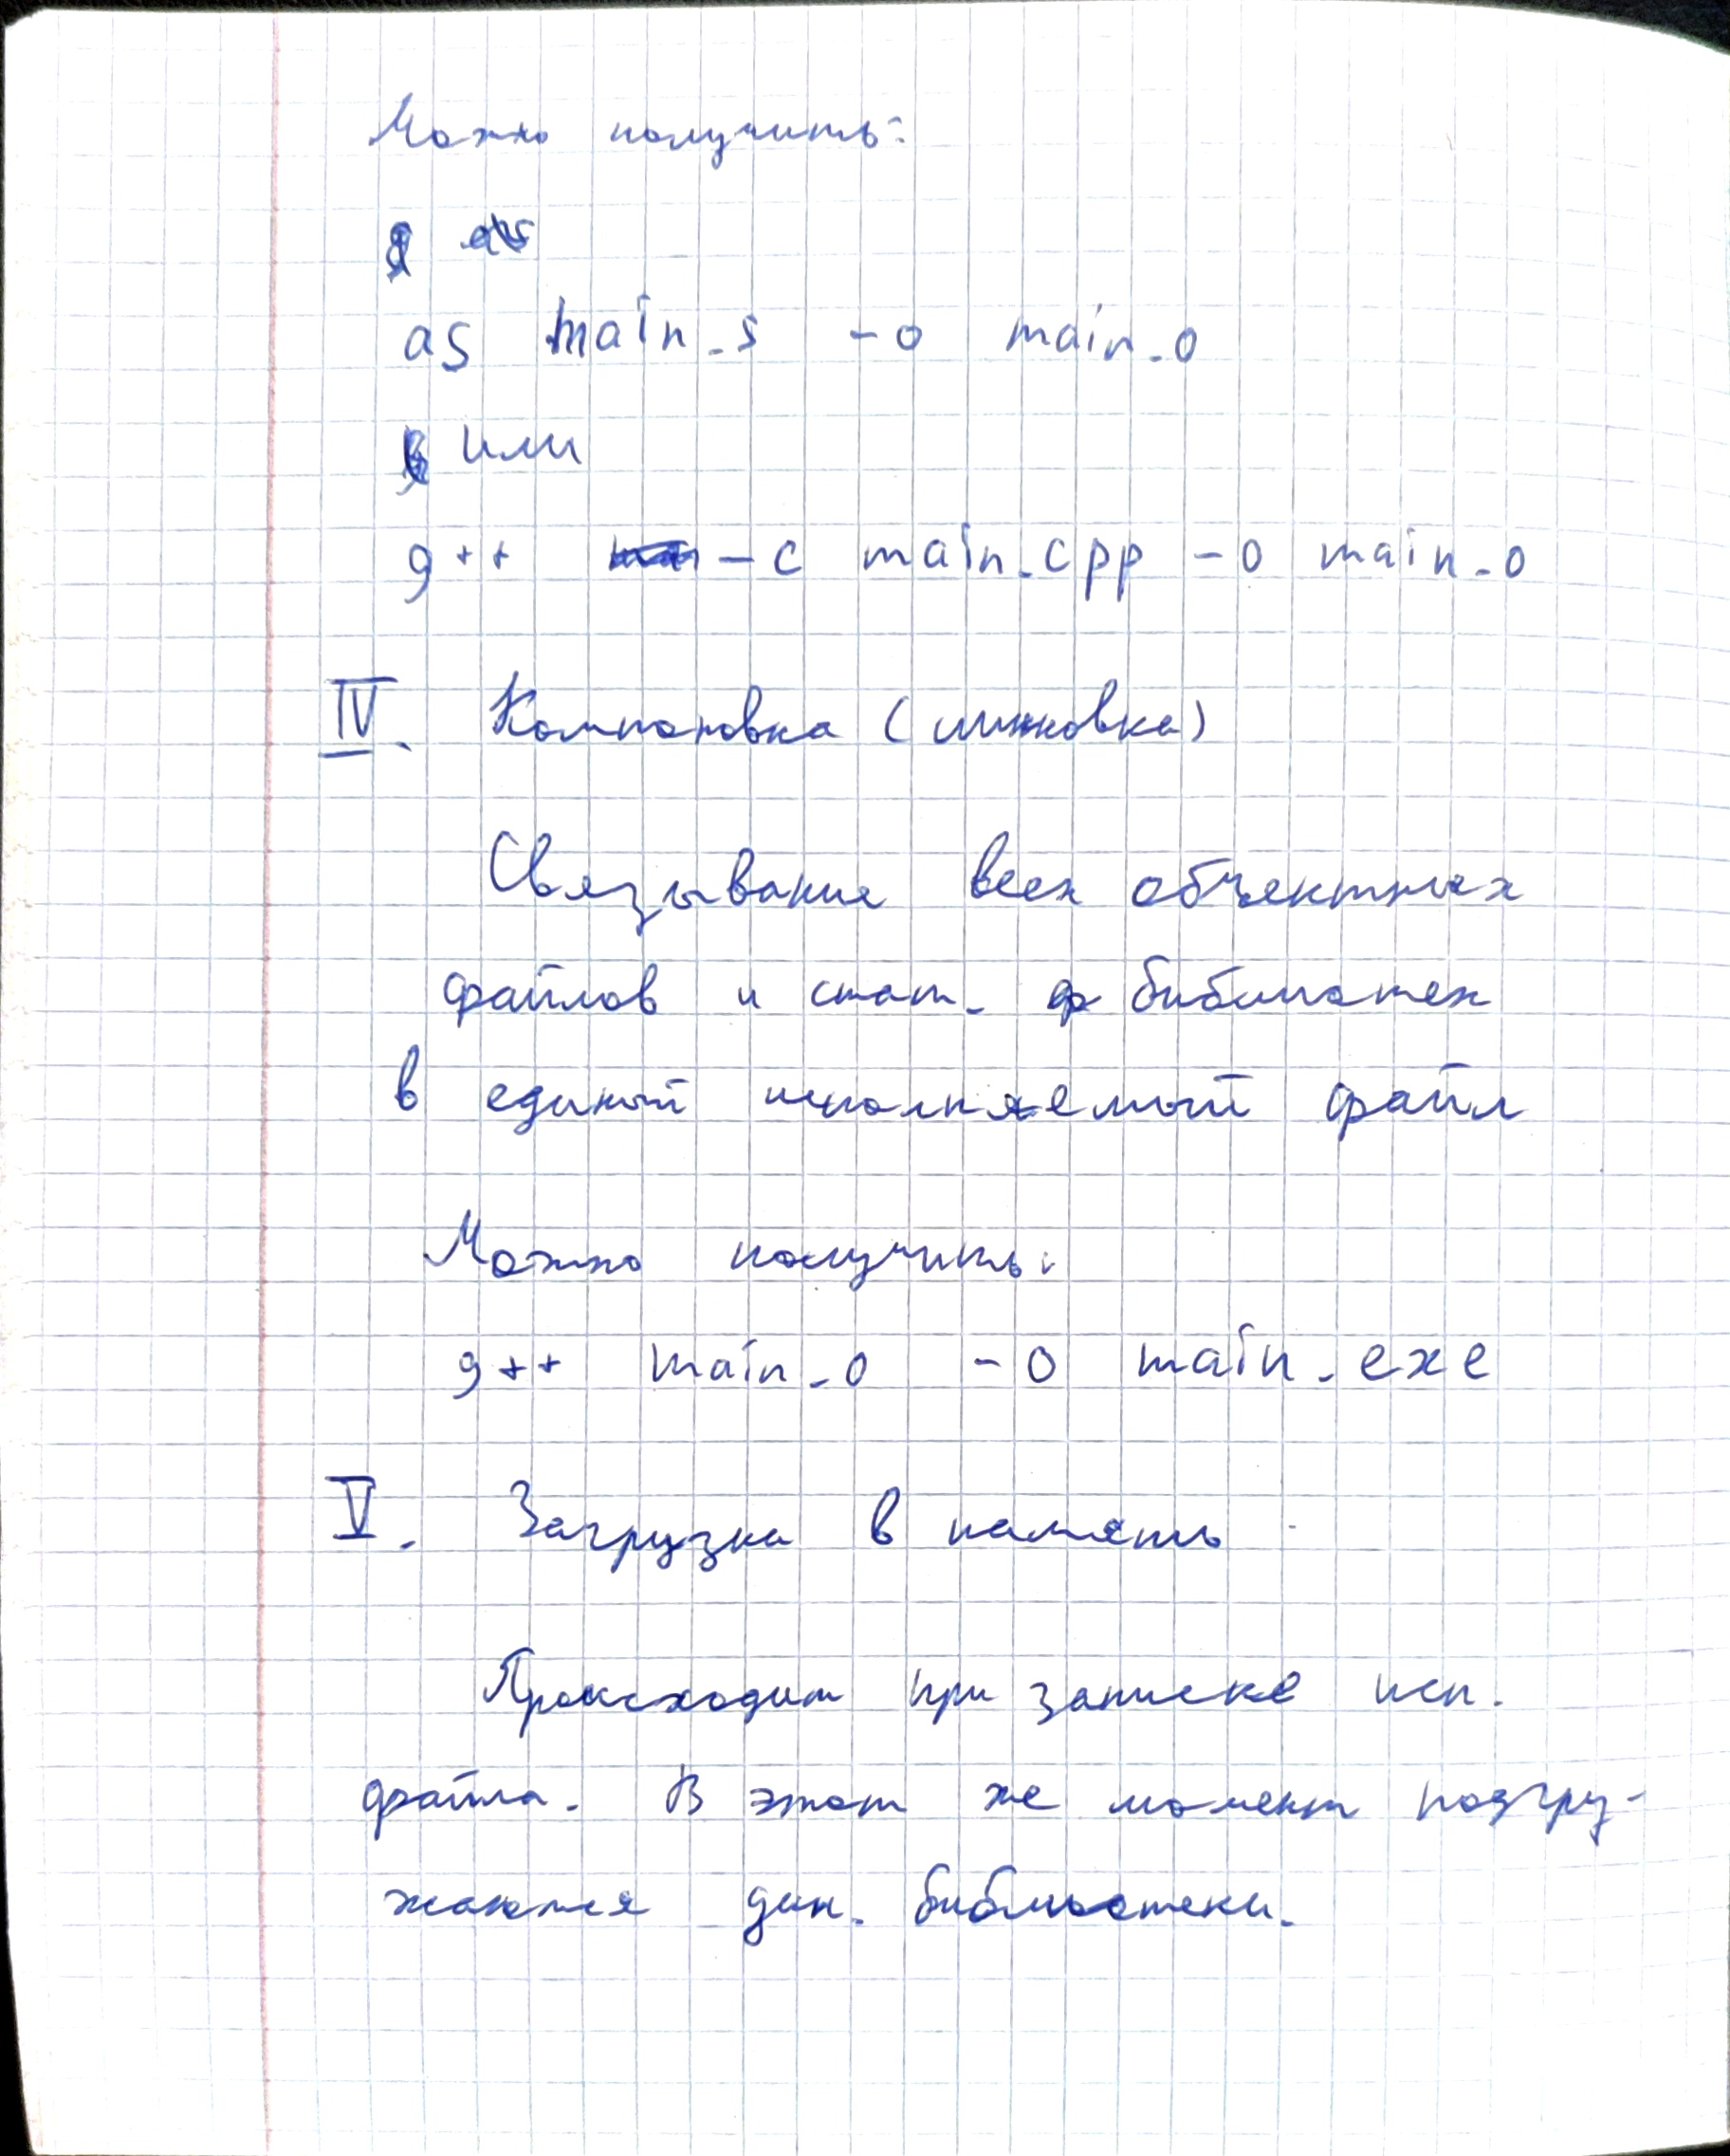 Можно получить:
as main.s -o main.o
или
g++ -c main.cpp -o main.o
IV. Компоновка (линковка)
Связывание всех объектных
файлов и стат. библиотек
в единый исполняемый файл
Можно получить:
g++ main.o -o main.exe
V. Загрузка в память
Происходит при запуске исп.
файла. В этот же момент подгру-
жаются дин. библиотеки.